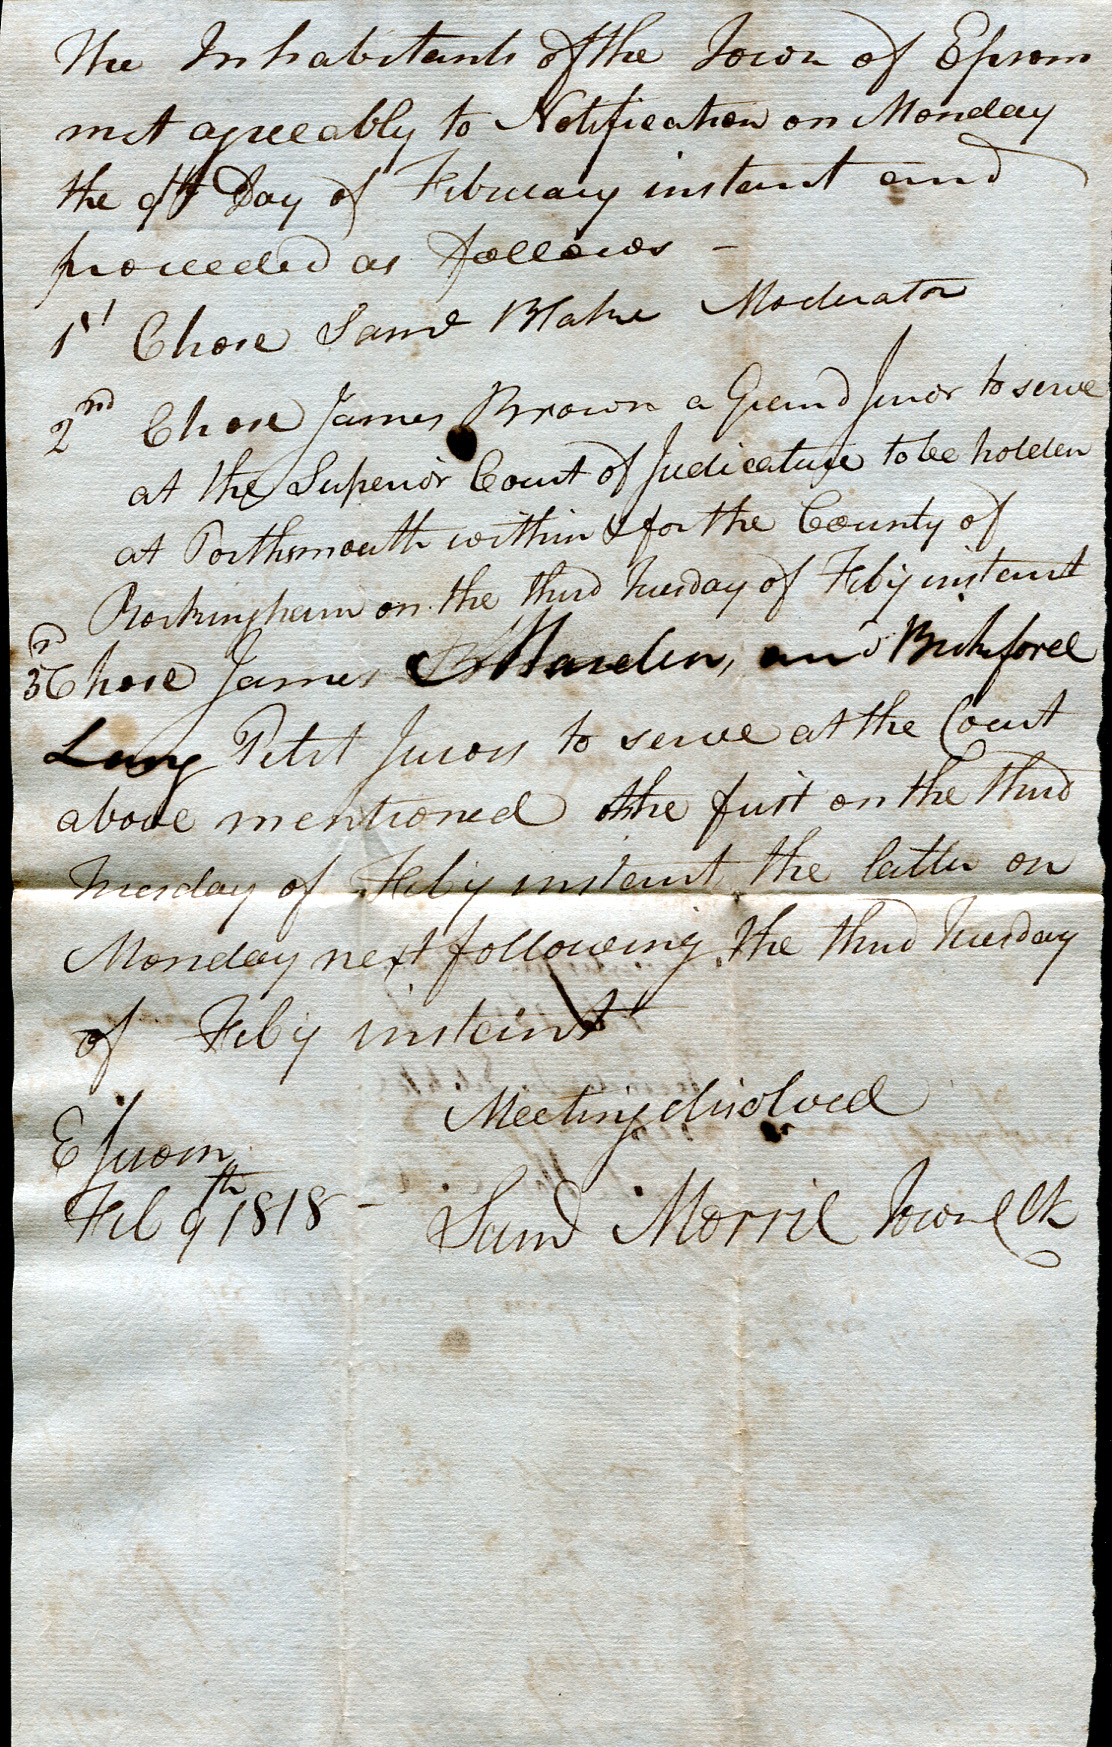 The Inhabitants of the Town of Epsom
met agreeably to Notification on Monday
the 9th Day of February instant and
proceeded as follows –
1st Chose Saml Blake Moderator
2nd Chose James Brown a Grand Juror to serve
at the Superior Court of Judicature to be holden
at Porthsmouth within & for the County of
Rockingham on the third Tuesday of Feby instant
3rd Chose James Marden, and Bickford
Lang Petit Jurors to serve at the Court
above mentioned the first on the third
Tuesday of Feby instant the latter on
Monday next following the third Tuesday
of Feby instant
Meeting disolved
Epsom
Feb 9th 1818 –
Saml Morril Town Clk